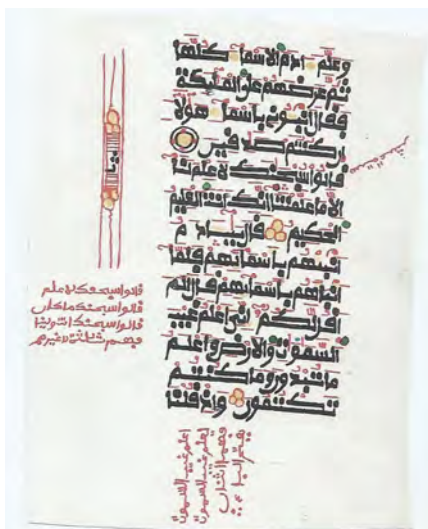 وعلم ادم الاسما كلها
ثم عرضهم على الملئكة
فقال انبوني باسما هولا
ان كنتم صدقين
قالوا سبحنك لا علم لنا
الا ما علمتنا انك انت العليم
الحكيم قال يادم
انبئهم باسمائهم فلما
انباهم باسمائهم قال الم
اقل لكم اني اعلم غيب
السموت والارض واعلم
ما تبدون وما كنتم
تكتمون واذ قلنا
قالوا سبحنك لا علم
قالوا سبحنك ما كان
قالوا سبحنك انت ولينا
فهم ثلثة لا غيرهم
اعلم غيب السموت
غيب السموت